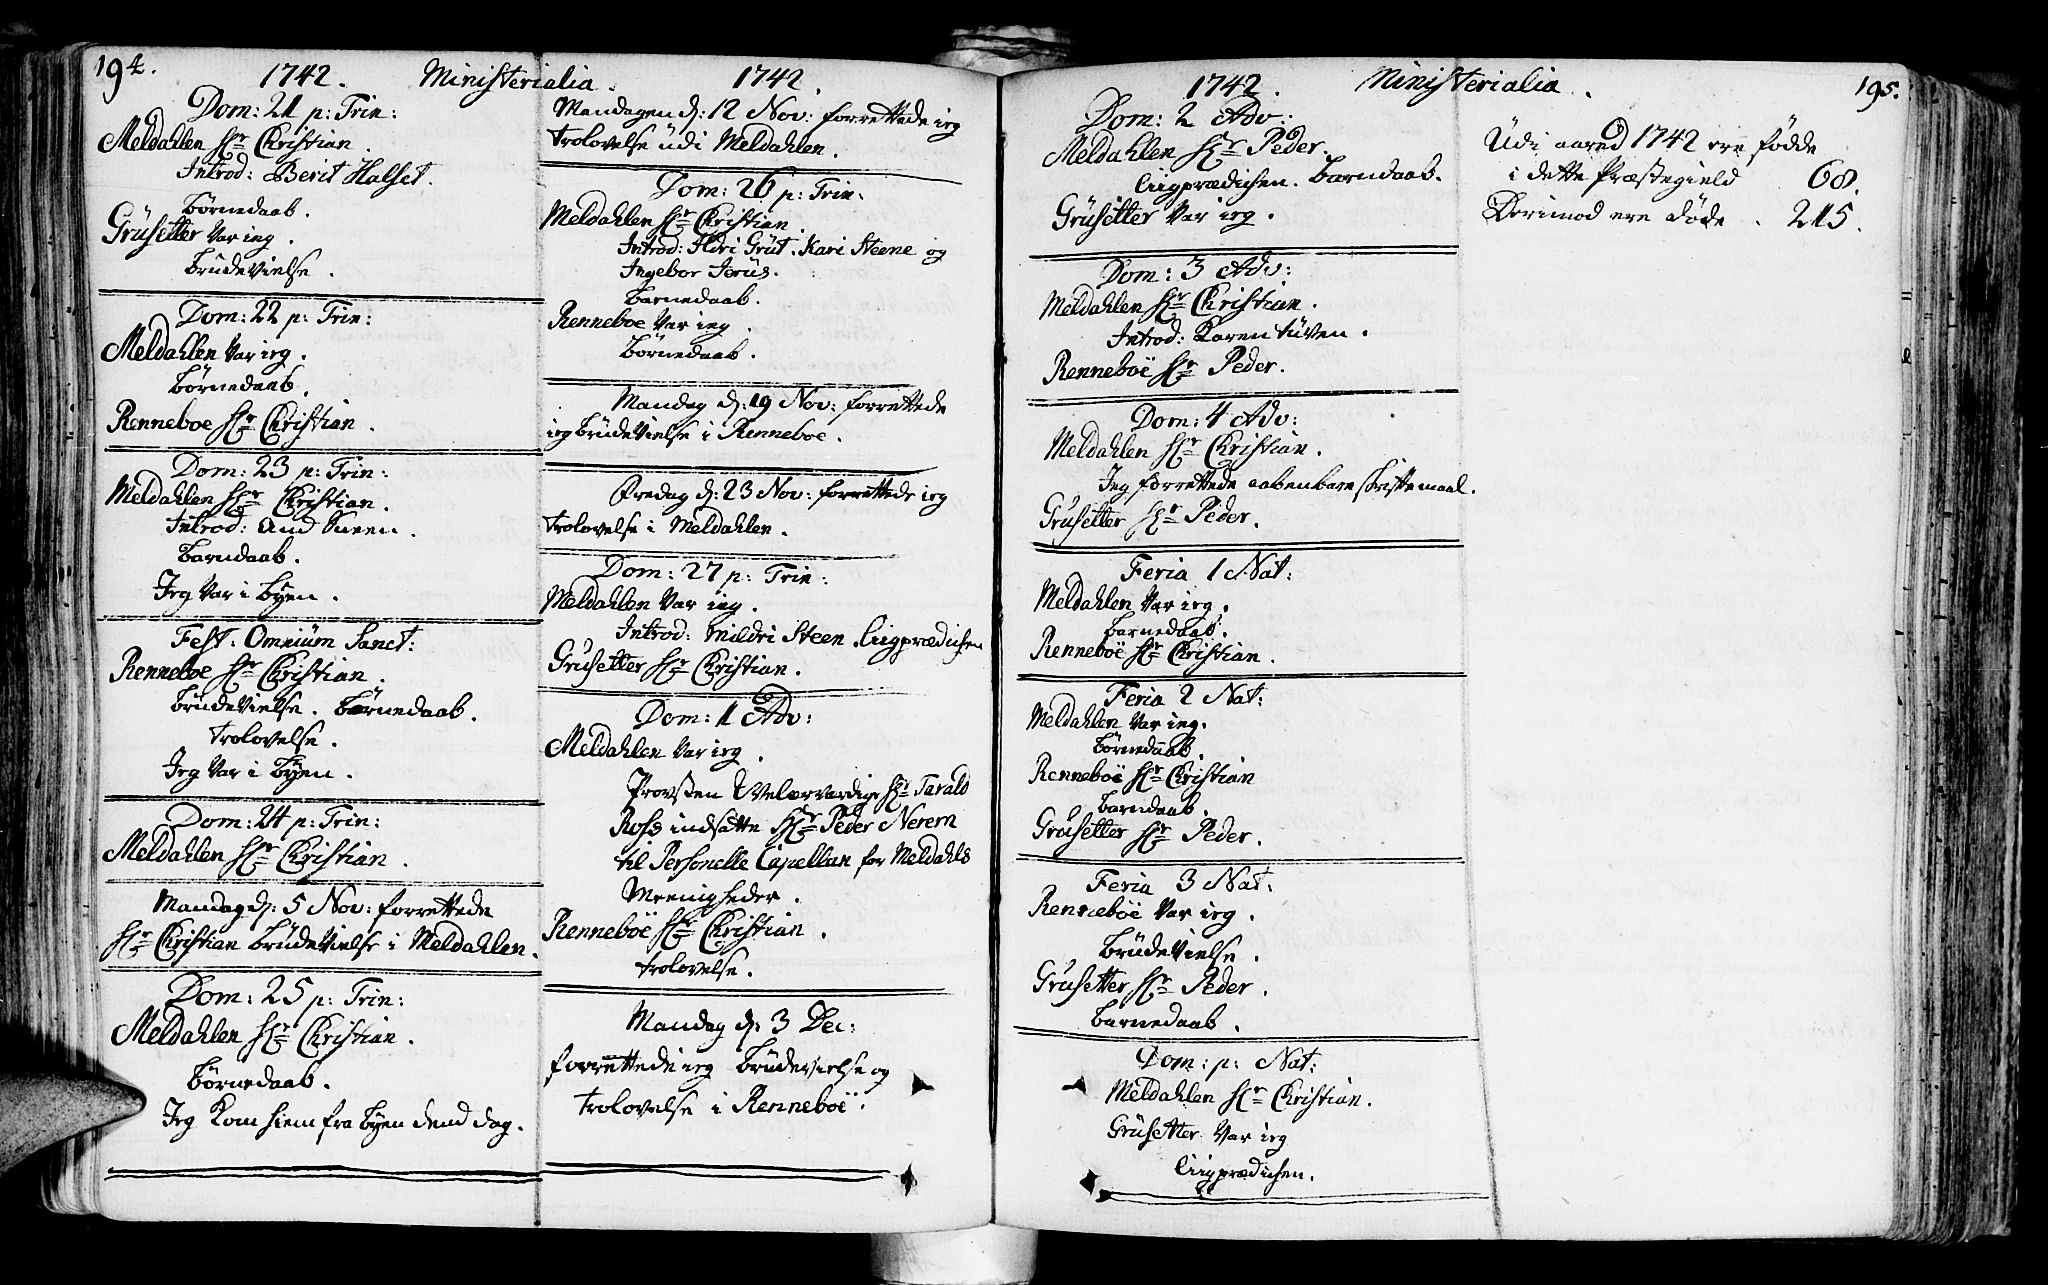 194.
1742. Ministerialia. 1742.
Dom: 21 p: Trin:
Meldahlen Hr Christian.
Introd: Berit Halset.
Børnedaab.
Grüsetter Var ieg.
Brüdevielse.
Dom: 22 p: Trin:
Meldahlen Var ieg.
Børnedaab.
Renneboe Hr Christian.
Dom: 23 p: Trin:
Meldahlen Hr Christian.
Introd: And Sneen.
Barndaab.
Jeg Var i Byen.
Fest: Omniüm Sanct:
Renneboe Hr Christian.
Brüdevielse. Børnedaab.
Trolovelse.
Jeg Var i Byen.
Dom: 24 p: Trin:
Meldahlen Hr Christian.
Mandag d: 5 Nov: forrettede
Hr Christian Brüdevielse i Meldahlen.
Dom: 25 p: Trin:
Meldahlen Hr Christian.
Børnedaab.
Jeg Kom hiem fra Byen dend dag.
Mandagen d: 12 Nov: forrettede ieg
Trolovelse üdi Meldahlen.
Dom: 26 p: Trin:
Meldahlen Hr Christian.
Introd: Ildri Grüt. Kari Steene og
Ingebor Jerüs.
Barnedaab.
Renneboe Var ieg.
Børnedaab.
Mandag d: 19 Nov: forrettede
ieg Brüdevielse i Renneboe.
Fredag d: 23 Nov: forrettede ieg
Trolovelse i Meldahlen.
Dom: 27 p: Trin:
Meldahlen Var ieg.
Introd: Mildri Steen. Liigprædichen
Grüsetter Hr Christian.
Dom: 1 Adv:
Meldahlen Var ieg.
Provsten Velærværdige Hr Tarald
Ross indsatte Hr Peder Nerem
til Personelle Capellan for Meldahls
Meenigheder.
Renneboë Hr Christian.
Trolovelse.
Mandag d: 3 Dec:
forrettede ieg Brüdevielse og
Trolovelse i Renneboë.
1742. Ministerialia. 195.
Dom: 2 Adv:
Meldahlen Hr Peder.
Liigprædichen. Barndaab.
Grüsetter Var ieg.
Dom: 3 Adv:
Meldahlen Hr Christian.
Introd: Karen tüven.
Renneboë Hr Peder.
Dom: 4 Adv:
Meldahlen Hr Christian.
Jeg forrettede aabenbare skriftemaal.
Grüsetter Hr Peder.
Feria 1 Nat:
Meldahlen Var ieg.
Barnedaab.
Renneboë Hr Christian.
Feria 2 Nat:
Meldahlen Var ieg.
Børnedaab.
Renneboë Hr Christian
Barndaab.
Grüsetter Hr Peder.
Feria 3 Nat:
Renneboë Var ieg.
Brüdevielse.
Grüsetter Hr Peder.
Barnedaab.
Dom: p: Nat:
Meldahlen Hr Christian.
Grüsetter Var ieg
Liigprædichen.
Udi aared 1742 ere fødde
i dette Præstegield 68.
Derimod ere døde. 215.